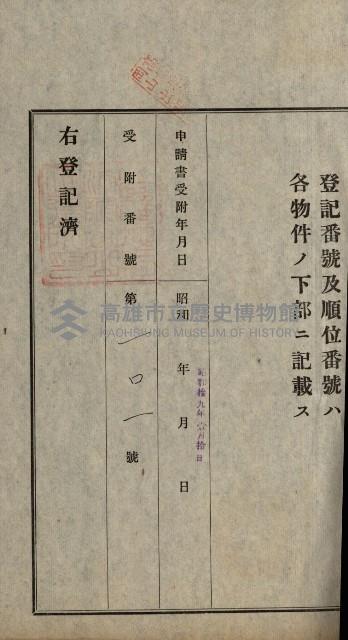 登記番號及順位番號ハ
各物件ノ下部ニ記載ス
申請書受附年月日 昭和 年 月 日
昭和拾九年壹月拾日
受附番號 第一〇一號
右登記濟
高雄市立歷史博物館
KAOHSIUNG MUSEUM OF HISTORY